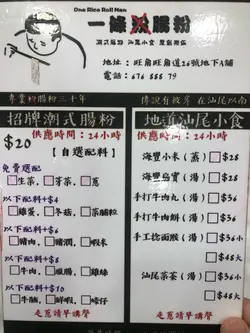 One Rice Roll Man
一條 腸粉
潮式腸粉 汕尾小食
地址：旺角旺角道26號地下A舖
電話：676 888 79
專業粉腸粉三十年
傳說有彼岸 在汕尾以南
招牌潮式腸粉
供應時間：24小時
$20
【自選配料】
免費選配
□生菜，□芽菜，□蔥
以下配料+$4
□雞蛋，□冬菜，□菜脯粒
以下配料+$6
□豬肉，□豬潤，□蝦米
以下配料+$8
□牛肉，□
以下配料+$10
□牛腩，□鮮蝦，□蠔仔
走蔥請早講聲
地道汕尾小食
供應時間：24小時
海豐小米（蒸）□$28
海豐烏寶（湯）□$28
手打牛肉丸（湯）□$36
手打牛肉餅（湯）□$36
手工捻面餜（湯）□$36小
□$48大
汕尾菜茶（湯）□$36小
□$48大
走蔥請早講聲